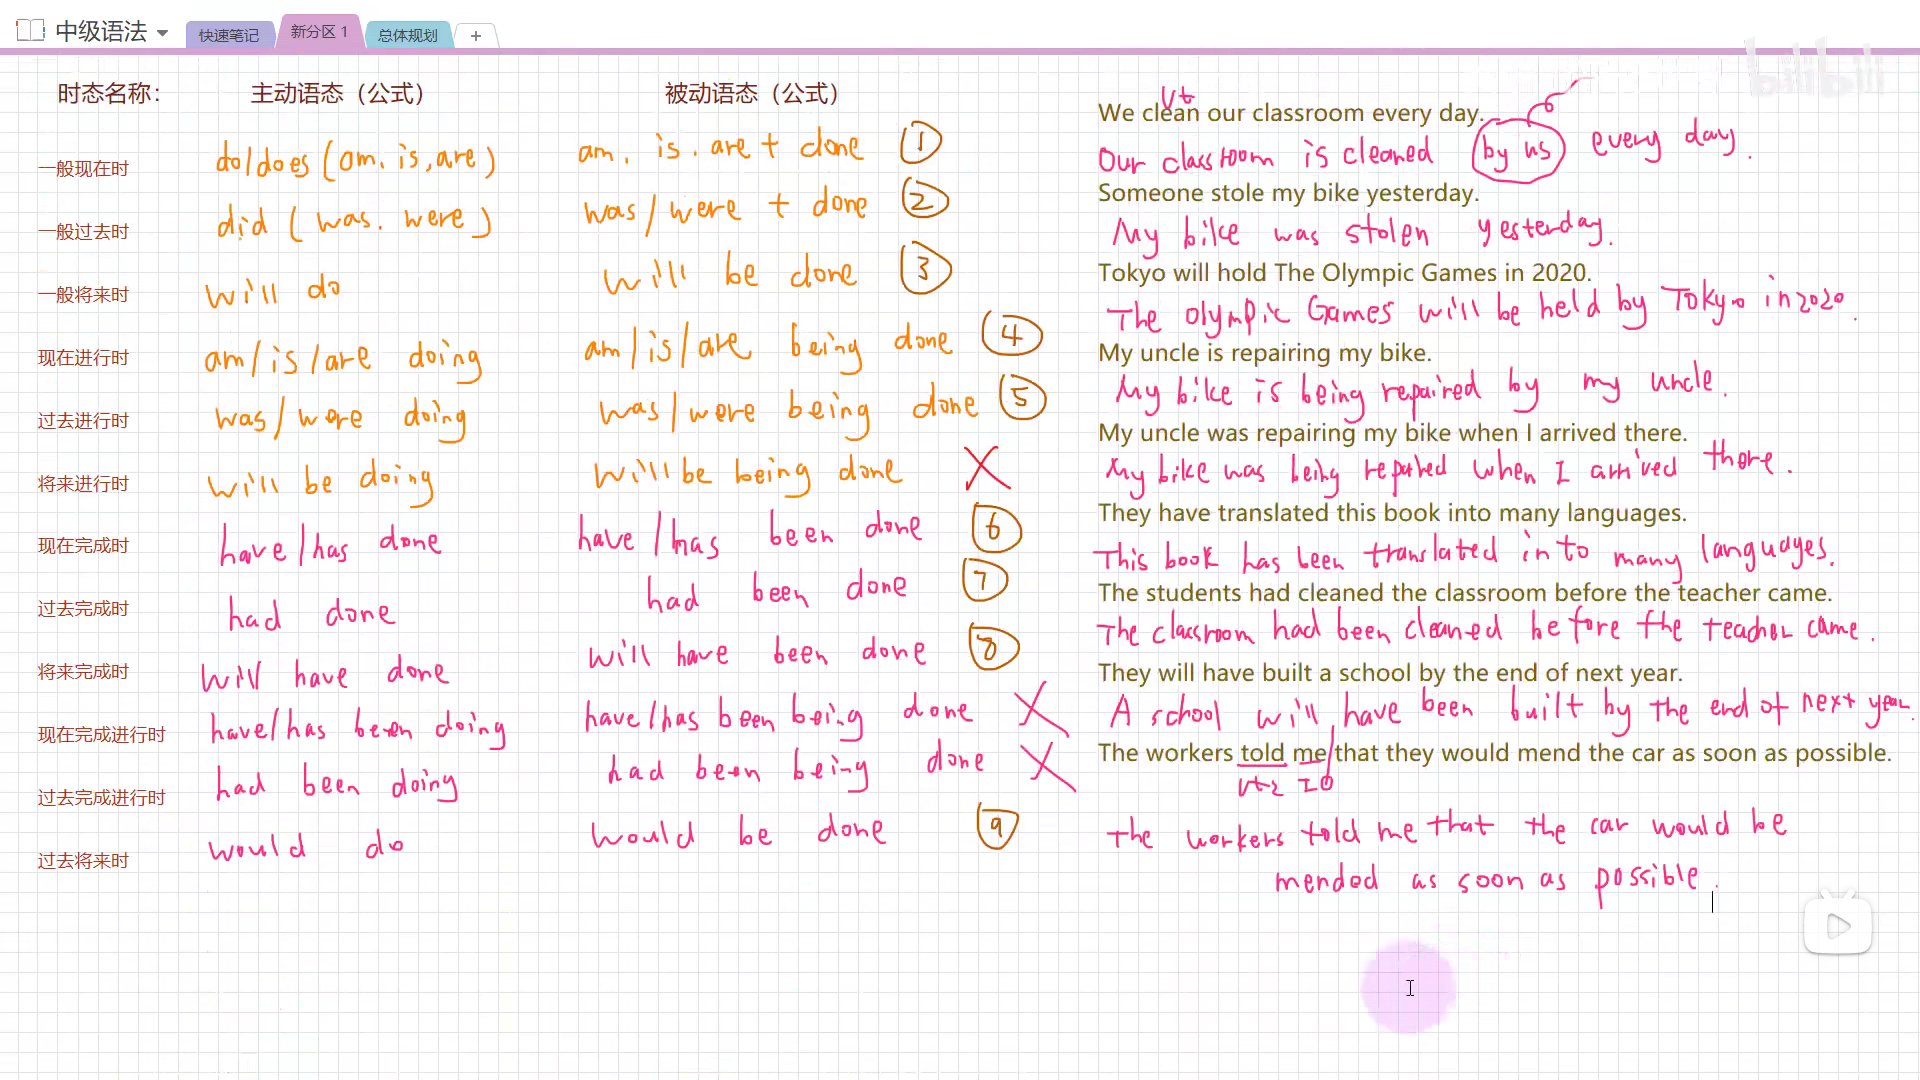 中级语法
快速笔记 新分区 1 总体规划 +
bilibili
时态名称： 主动语态（公式） 被动语态（公式）
一般现在时 do/does (am, is, are) am. is. are + done ①
一般过去时 did (was. were) was/were + done ②
一般将来时 will do will be done ③
现在进行时 am/is/are doing am/is/are being done ④
过去进行时 was/were doing was/were being done ⑤
将来进行时 will be doing will be being done ×
现在完成时 have/has done have/has been done ⑥
过去完成时 had done had been done ⑦
将来完成时 will have done will have been done ⑧
现在完成进行时 have/has been doing have/has been being done ×
过去完成进行时 had been doing had been being done ×
过去将来时 would do would be done ⑨
vt
We clean our classroom every day.
Our classroom is cleaned by us every day.
Someone stole my bike yesterday.
My bike was stolen yesterday.
Tokyo will hold The Olympic Games in 2020.
The Olympic Games will be held by Tokyo in 2020.
My uncle is repairing my bike.
My bike is being repaired by my uncle.
My uncle was repairing my bike when I arrived there.
My bike was being repaired when I arrived there.
They have translated this book into many languages.
This book has been translated into many languages.
The students had cleaned the classroom before the teacher came.
The classroom had been cleaned before the teacher came.
They will have built a school by the end of next year.
A school will have been built by the end of next year.
The workers told me that they would mend the car as soon as possible.
vt2 IO
The workers told me that the car would be
mended as soon as possible.